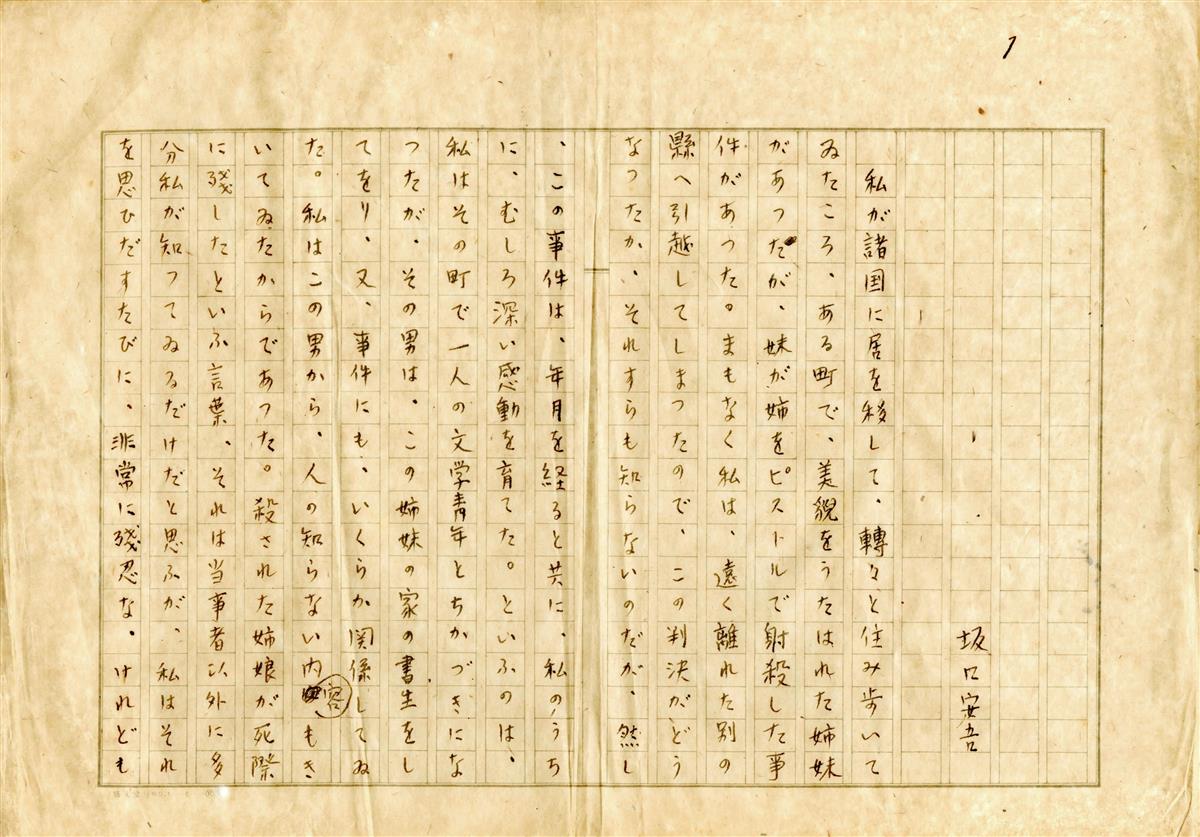 1
坂口安吾
私が諸国に居を移して、轉々と住み歩いて
ゐたころ、ある町で、美貌をうたはれた姉妹
があつたが、妹が姉をピストルで射殺した事
件があつた。まもなく私は、遠く離れた別の
縣へ引越してしまつたので、この判決がどう
なつたか、それすらも知らないのだが、然し
、この事件は、年月を経ると共に、私のうち
に、むしろ深い感動を育てた。といふのは、
私はその町で一人の文学青年とちかづきにな
つたが、その男は、この姉妹の家の書生をし
てをり、又、事件にも、いくらか関係してゐ
た。私はこの男から、人の知らない内容もき
いてゐたからであつた。殺された姉娘が死際
に残したといふ言葉、それは当事者以外に多
分私が知つてゐるだけだと思ふが、私はそれ
を思ひだすたびに、非常に残忍な、けれども